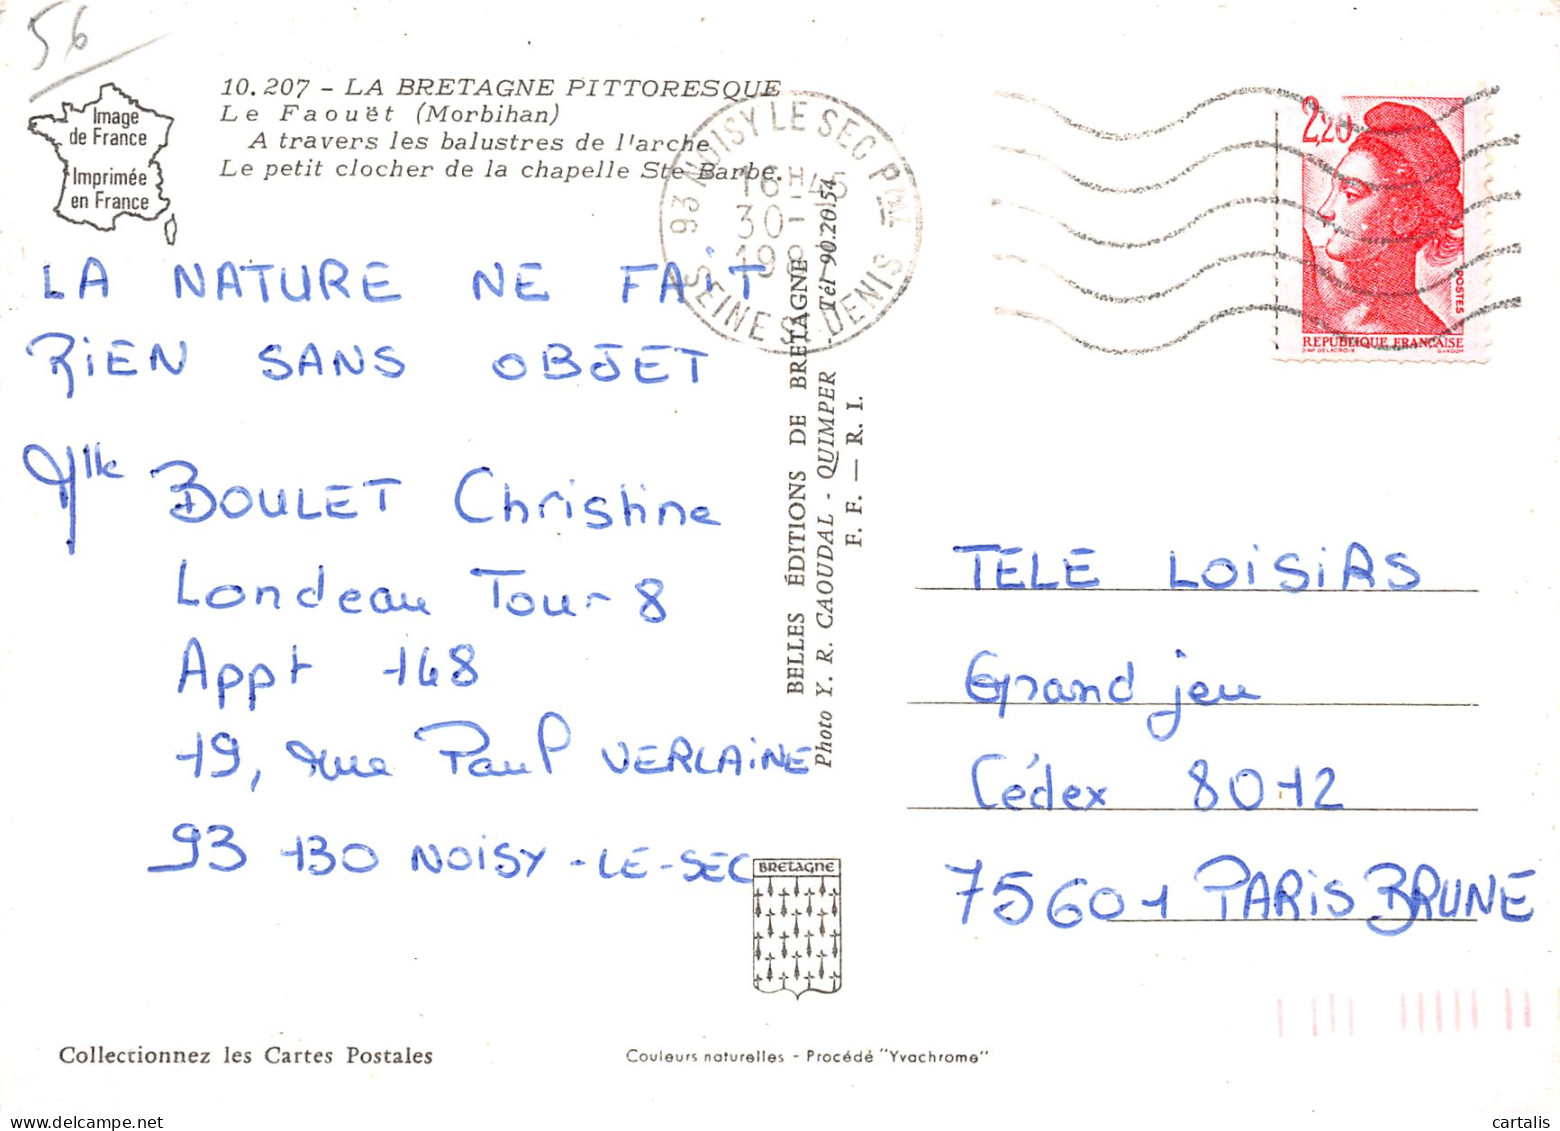 56
Image
de France
Imprimée
en France
10.207 - LA BRETAGNE PITTORESQUE
Le Faouët (Morbihan)
A travers les balustres de l'arche
Le petit clocher de la chapelle Ste Barbe.
93 NOISY LE SEC Pal
16H45
30-1
198
SEINE ST DENIS
2,20
POSTES
REPUBLIQUE FRANÇAISE
D'AP DELACROIX GANDON
LA NATURE NE FAIT
RIEN SANS OBJET
Mlle BOULET Christine
Londeau Tour 8
Appt 168
19, rue Paul VERLAINE
93 130 NOISY-LE-SEC
BELLES ÉDITIONS DE BRETAGNE
Photo Y. R. CAOUDAL - QUIMPER - Tél 90.20.54
F. F. — R. I.
TELE LOISIRS
Grand jeu
Cédex 8012
75601 PARIS BRUNE
BRETAGNE
Collectionnez les Cartes Postales
Couleurs naturelles - Procédé "Yvachrome"
www.cartexpo.fr
cartalis